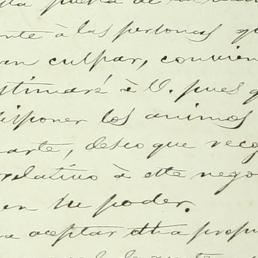 nte à las personas qu
an culpar, convien
stimaré à V. pues q
disponer los animos
arte, deseo que reco
relativo à este nego
en su poder.
a aceptar otra propu